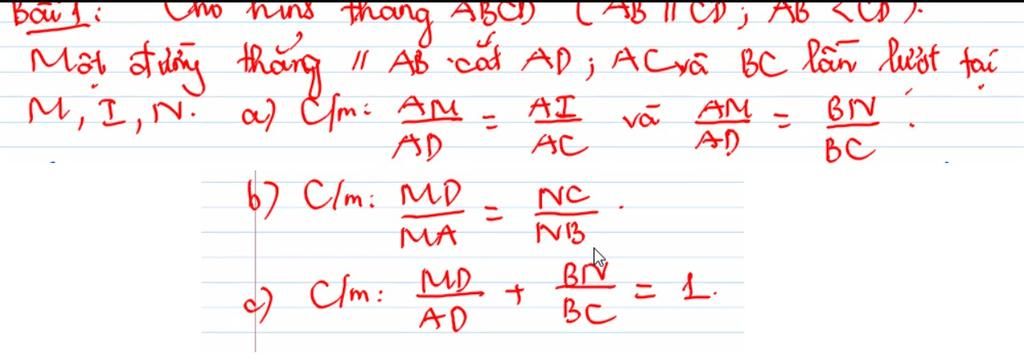 Bài 1: Cho hình thang ABCD (AB // CD; AB < CD).
Một đường thẳng // AB cắt AD; AC và BC lần lượt tại
M, I, N. a) C/m: AM/AD = AI/AC và AM/AD = BN/BC.
b) C/m: MD/MA = NC/NB.
c) C/m: MD/AD + BN/BC = 1.